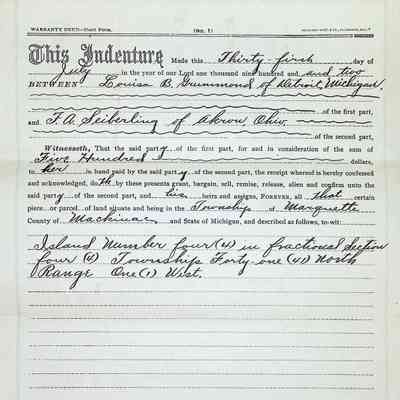 WARRANTY DEED—Short Form. (No. 1)
This Indenture Made this Thirty-first day of
July in the year of our Lord one thousand nine hundred and two
BETWEEN Louisa B. Grummond of Detroit, Michigan,
of the first part,
and F. A. Seiberling of Akron, Ohio,
of the second part,
Witnesseth, That the said party of the first part, for and in consideration of the sum of
Five Hundred dollars,
to her in hand paid by the said party of the second part, the receipt whereof is hereby confessed
and acknowledged, doth by these presents grant, bargain, sell, remise, release, alien and confirm unto the
said party of the second part, and his heirs and assigns, FOREVER, all that certain
piece or parcel of land situate and being in the Township of Marquette
County of Mackinac and State of Michigan, and described as follows, to-wit:
Island Number four (4) in fractional Section
four (4) Township Forty-one (41) North
Range One (1) West.